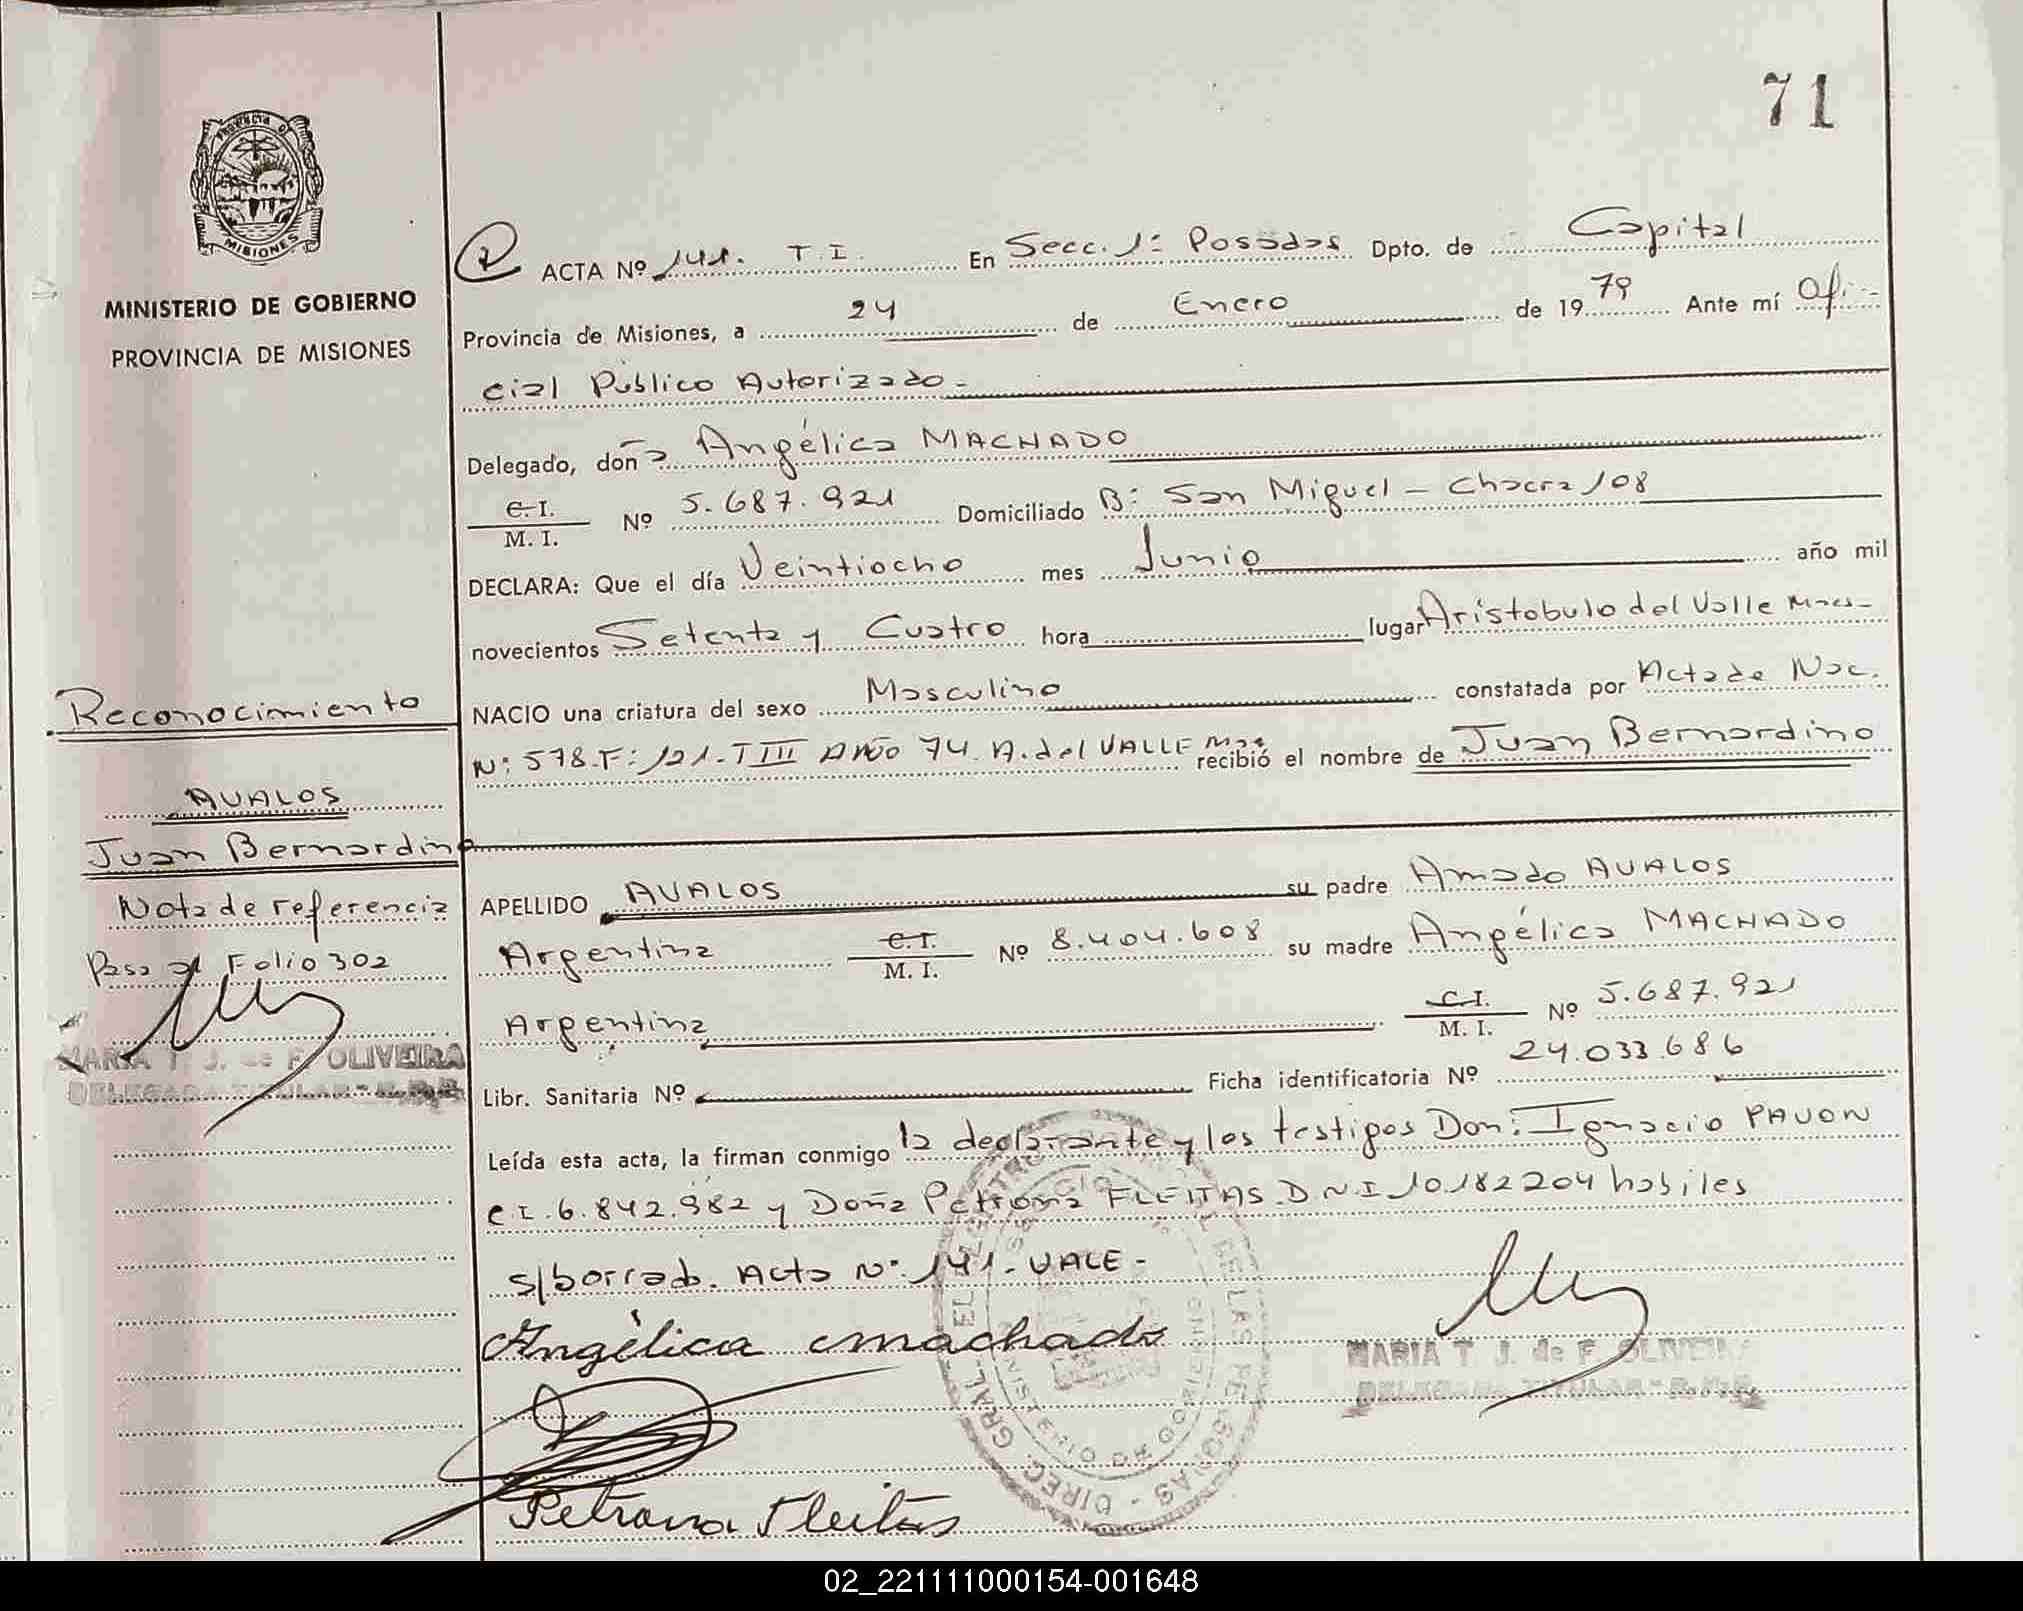 71
PROVINCIA DE
MISIONES
MINISTERIO DE GOBIERNO
PROVINCIA DE MISIONES
ACTA Nº 141. T.I. En Secc. 1ª Posadas Dpto. de Capital
Provincia de Misiones, a 24 de Enero de 1979 Ante mí Ofi-
cial Público Autorizado-
Delegado, doña Angélica MACHADO
C.I. M. I. Nº 5.687.921 Domiciliado Bº San Miguel - Chacra 108
DECLARA: Que el día Veintiocho mes Junio año mil
novecientos Setenta y Cuatro hora lugar Aristobulo del Valle Mnes-
NACIO una criatura del sexo Masculino constatada por Acta de Nac.
Nº 578.Fº 121-TIII AÑO 74. A. del VALLE Mnes recibió el nombre de Juan Bernardino
APELLIDO AVALOS su padre Amado AVALOS
Argentina C.I. M. I. Nº 8.404.608 su madre Angélica MACHADO
Argentina C.I. M. I. Nº 5.687.921
Libr. Sanitaria Nº Ficha identificatoria Nº 24.033.686
Leída esta acta, la firman conmigo la declarante y los testigos Don: Ignacio PAVON
C.I. 6.842.982 y Doña Petrona FLEITAS. D.N.I 10.182204 habiles
s/borrado. Acta Nº 141. VALE-
Angélica machado
Petrona Fleitas
MARIA T. J. de F. OLIVEIRA
DELEGADA TITULAR
Reconocimiento
AVALOS
Juan Bernardino
Nota de referencia
Pasa al Folio 302
MARIA T. J. de F. OLIVEIRA
DELEGADA TITULAR
02_221111000154-001648